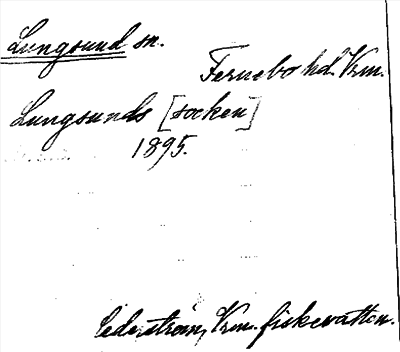 Lungsund sn.
Fernebo hd. Vrm.
Lungsunds [socken]
1895.
Cederström, Vrm. fiskevatten.